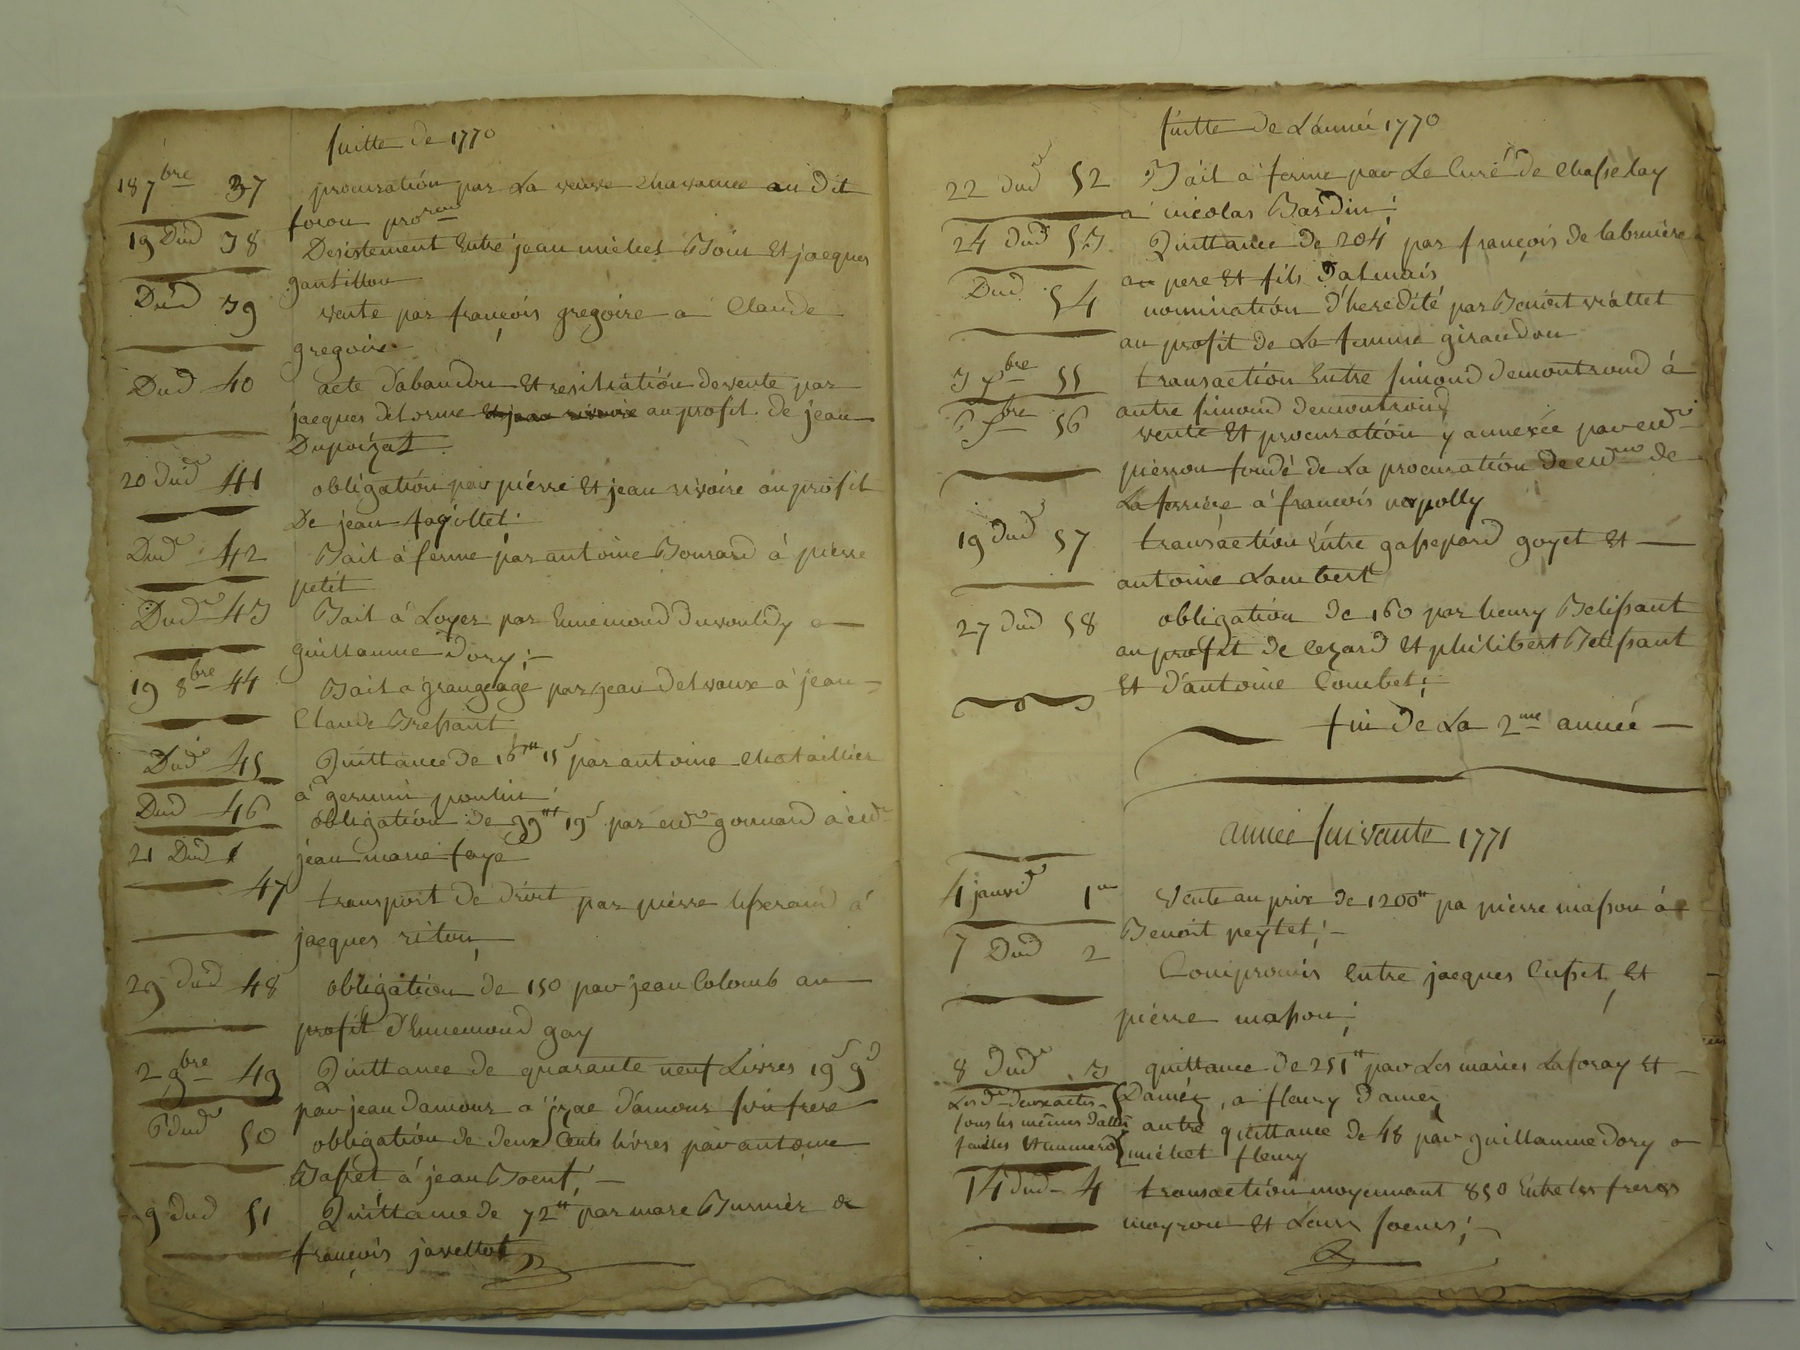 suitte de 1770
18 7bre 37 procuration par La veuve Chavanne au dit
foron
19 Dud 38 Desistement Entre jean michel Boin Et jacques
gantillon
Dud 39 vente par françois gregoire a Claude
gregoire
Dud 40 acte dabandon Et resiliation de vente par
jacques delorme au profit de jean
Dupoizat
20 dud 41 obligation par pierre Et jean rivoire au profit
De jean fagottet
Dud 42 Bail a ferme par antoine Bonnard à pierre
petit
Dud 43 Bail à Loyer par Ennemond à
guillaume Dory;
19 8bre 44 Bail a grangeage par jean delvaux à jean
Claude Bressant
Dud 45 Quittance de 15s par antoine chataillier
à germain poulin
Dud 46 obligation de 39tt 19s par end gonnard a end
21 Dud jean marie faye
47 transport de droit par pierre à
jacques riton
29 dud 48 obligation de 150 par jean Colomb au
profit d'Ennemond gay
2 9bre 49 Quittance de quarante neuf Livres 19s 9d
par jean damour a izac damour son frere
6 dud 50 obligation de deux Cents livres par antoine
Basset à jean Boeuf
9 dud 51 Quittance de 72tt par marc Burnier a
françois javellot
suitte de L'année 1770
22 dud 52 Bail a ferme par Le Curé de Chasselay
a nicolas Bardin;
24 dud 53 Quittance de 204 par françois de labruiere
au pere Et fils Dalmais
Dud 54 nomination d'heredité par Benoit viallet
au profit de La femme giraudon
3 Xbre 55 transaction Entre simond demontrond à
autre simond demontrond
6 Xbre 56 vente Et procuration y annexée par end
pierron fondé de La procuration de end de
Laferriere a francois
19 dud 57 transaction Entre gassepard goyet Et
antoine Lambert
27 dud 58 obligation de 160 par henry Belissant
au profit de cezard Et philibert Belissant
Et d'antoine Combet;
fin de La 2me année
année suivante 1771
4 janvd 1er Vente au prix de 1200tt pa pierre masson à
Benoit peytet;
7 Dud 2 Compromis Entre jacques Cusset Et
pierre masson;
8 dud 3 quittance de 251tt par Les mariés Laforay Et
Les d deux actes Damez, a fleury Damez
sous les mêmes dattes autre quittance de 48 par guillaume dory a
Et numero michel fleury
14 dud 4 transaction moyennant 850 Entre les freres
moyrou Et Leurs soeurs;